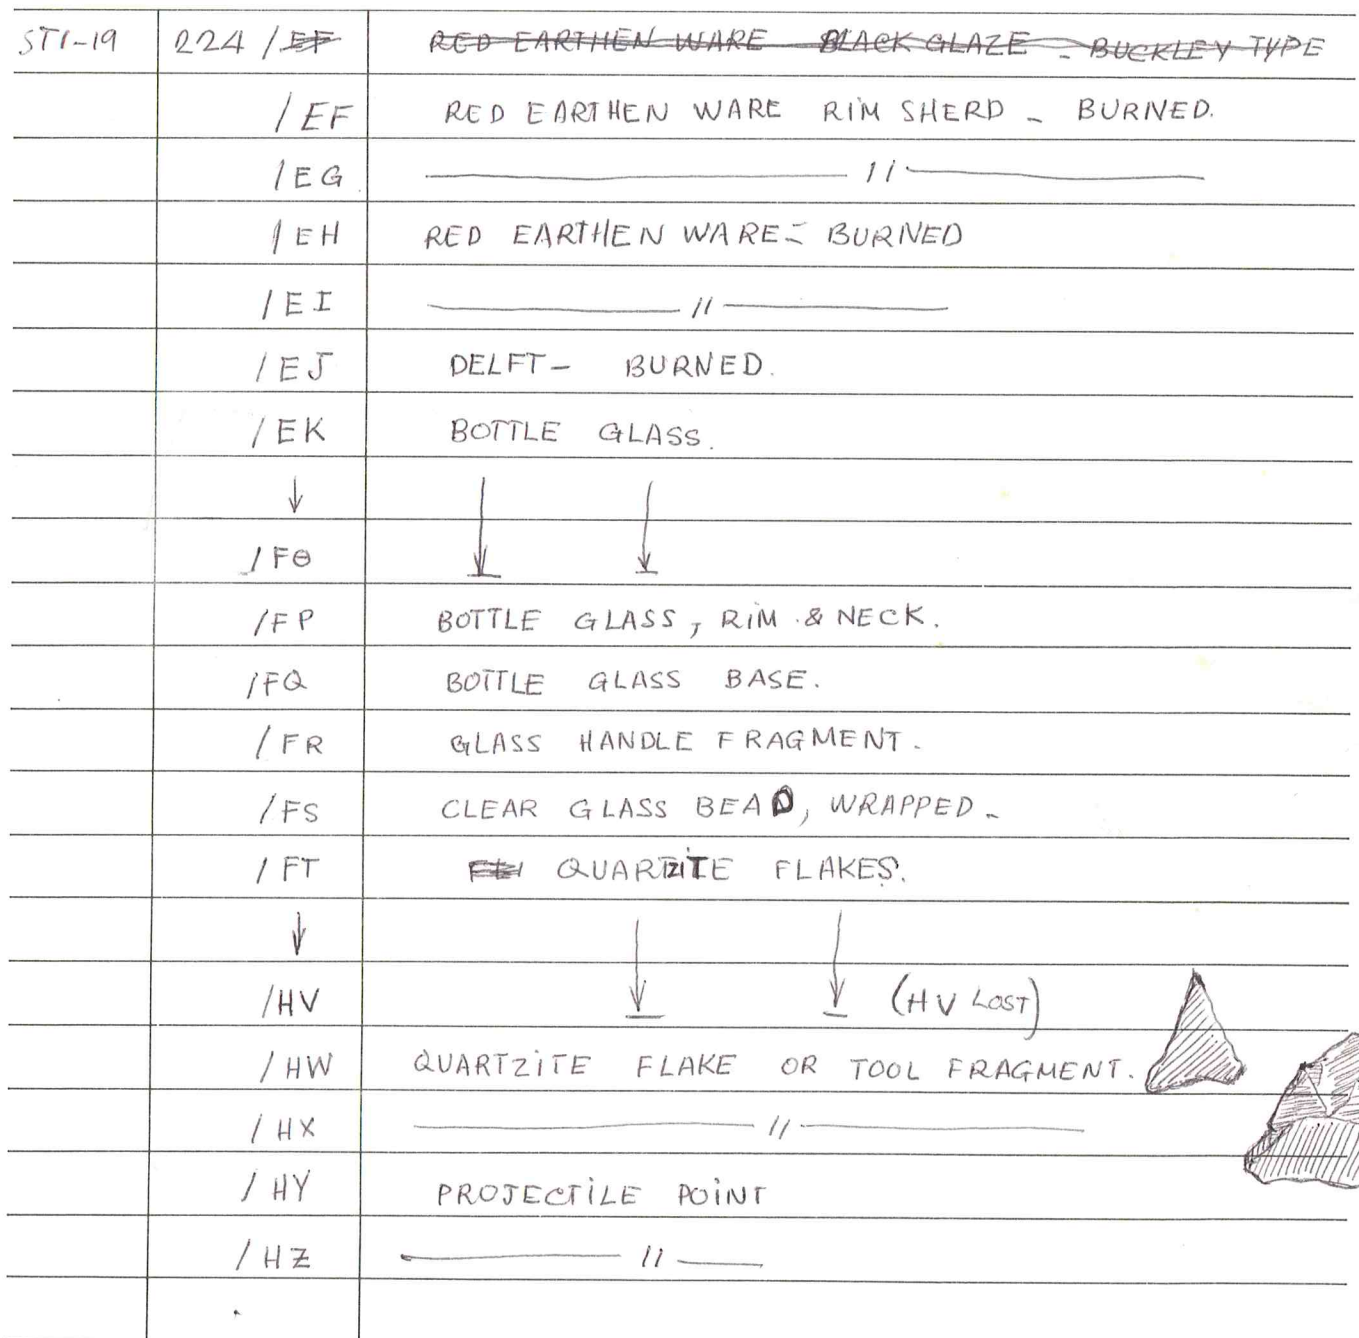 ST1-19 224 /EF RED EARTHEN WARE BLACK GLAZE - BUCKLEY TYPE
/EF RED EARTHEN WARE RIM SHERD - BURNED.
/EG ——— // ———
/EH RED EARTHEN WARE - BURNED
/EI ——— // ———
/EJ DELFT - BURNED.
/EK BOTTLE GLASS.
↓ ↓ ↓
/FO
/FP BOTTLE GLASS, RIM & NECK.
/FQ BOTTLE GLASS BASE.
/FR GLASS HANDLE FRAGMENT.
/FS CLEAR GLASS BEAD, WRAPPED -
/FT QUARTZITE FLAKES.
↓ ↓ ↓
/HV (HV LOST)
/HW QUARTZITE FLAKE OR TOOL FRAGMENT.
/HX ——— // ———
/HY PROJECTILE POINT
/HZ ——— // ———